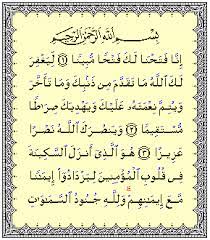 بِسْمِ ٱللَّهِ ٱلرَّحْمَٰنِ ٱلرَّحِيمِ
إِنَّا فَتَحْنَا لَكَ فَتْحًا مُّبِينًا ۝١ لِّيَغْفِرَ
لَكَ ٱللَّهُ مَا تَقَدَّمَ مِن ذَنۢبِكَ وَمَا تَأَخَّرَ
وَيُتِمَّ نِعْمَتَهُۥ عَلَيْكَ وَيَهْدِيَكَ صِرَٰطًا
مُّسْتَقِيمًا ۝٢ وَيَنصُرَكَ ٱللَّهُ نَصْرًا
عَزِيزًا ۝٣ هُوَ ٱلَّذِىٓ أَنزَلَ ٱلسَّكِينَةَ
فِى قُلُوبِ ٱلْمُؤْمِنِينَ لِيَزْدَادُوٓا۟ إِيمَٰنًا
مَّعَ إِيمَٰنِهِمْ ۗ وَلِلَّهِ جُنُودُ ٱلسَّمَٰوَٰتِ